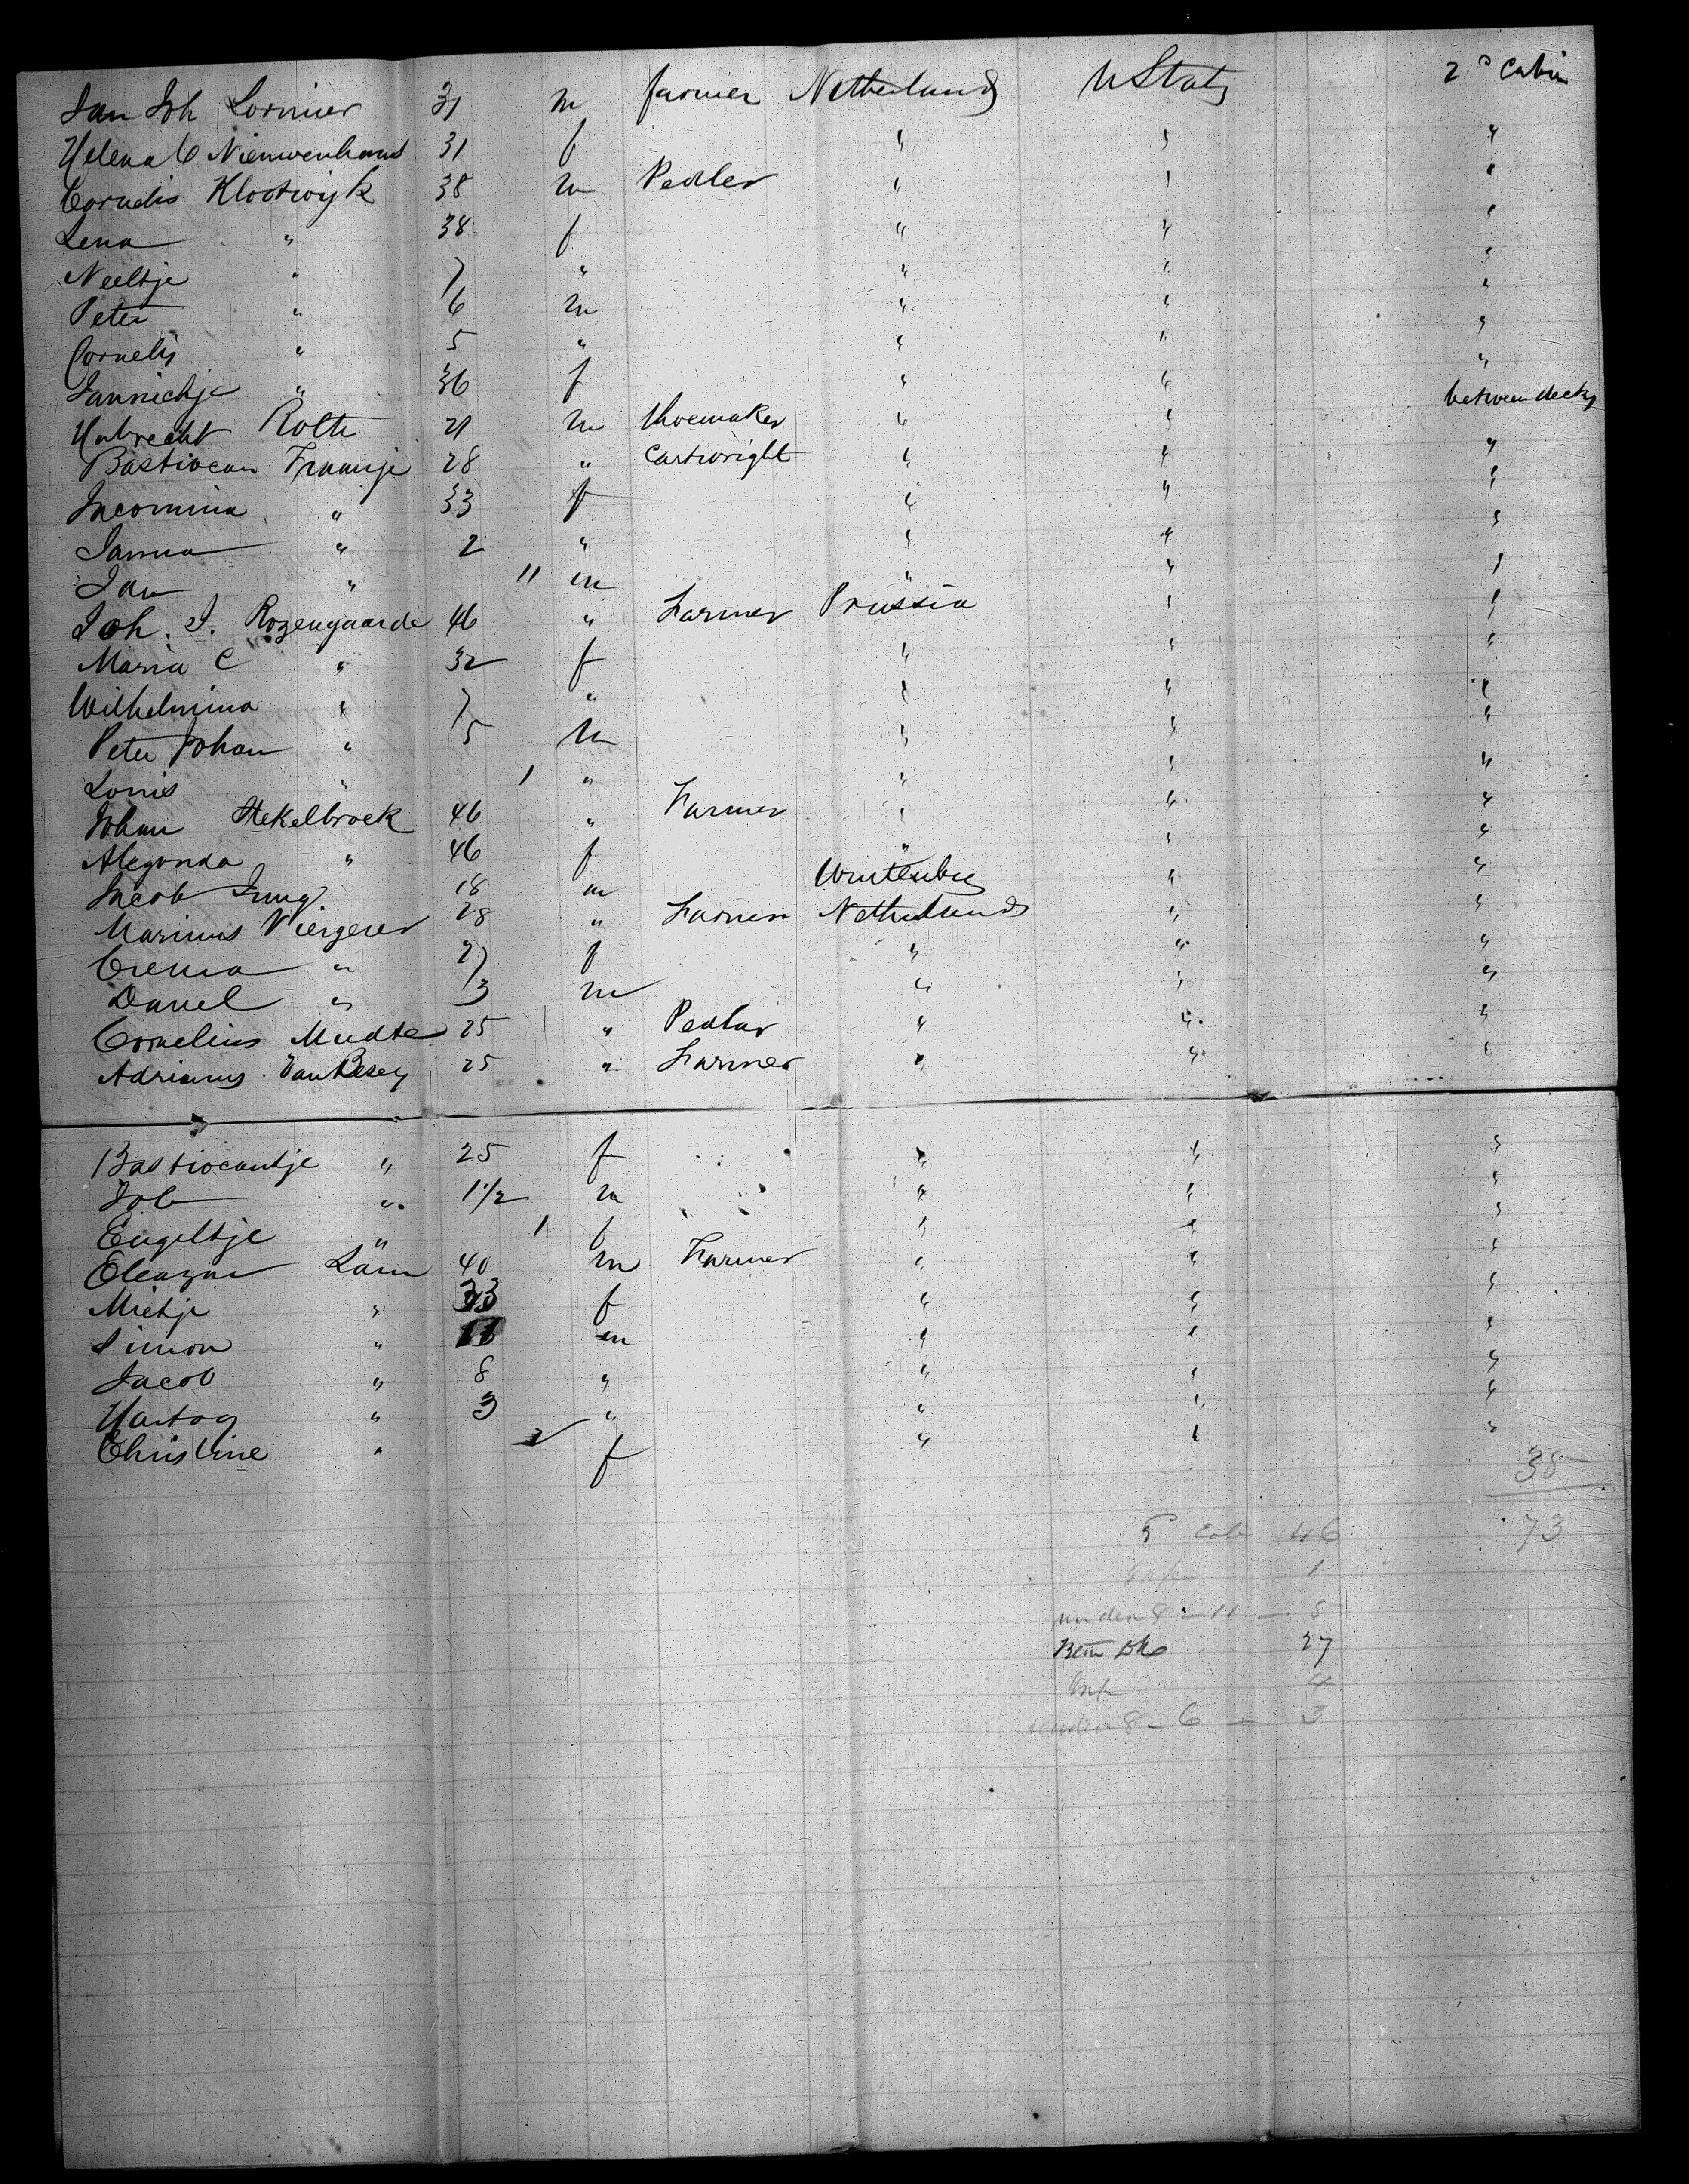 Jan Joh Lormier 31 m farmer Netherlands U Stats 2d Cabin
Helena C Nieuwenhuns 31 f " " "
Cornelis Klootwijk 38 m Pedler " " "
Lena " 38 f " " "
Neeltje " 7 " " " "
Peter " 6 m " " "
Cornelis " 5 " " " "
Jannichje " 36 f " " "
Hubrecht Rolte 21 m Shoemaker " " between decks
Bastiocan Fraanje 28 " Cartwright " " "
Jacomina " 33 f " " "
Janna " 2 " " " "
Jan " 11 m " " "
Joh. J. Rozengaarde 46 " Farmer Prussia " "
Maria C " 32 f " " "
Wilhelmina " 7 " " " "
Peter Johan " 5 m " " "
Louis " 1 " " " "
Johan Stekelbroek 46 " Farmer " " "
Alegonda " 46 f " " "
Jacob Jung 18 m Wurtenberg " "
Marinus Viergever 28 " Farmer Netherlands " "
Crena " 27 f " " "
Daniel " 3 m " " "
Cornelius Mudte 25 " Pedlar " " "
Adrianus Van 25 " Farmer " " "
Bastiocantje " 25 f " " "
Job " 1 1/2 m " " "
Engeltje " 1 f " " "
Eleazar Lam 40 m Farmer " " "
Mietje " 33 f " " "
Simon " m " " "
Jacob " 8 " " " "
Hartog " 3 " " " "
Christine " 2 f " " "
38
Cab 46 73
Inf 1
under 8 - 11 - 5
Betw Dks 27
Inf 4
under 8 - 6 - 3